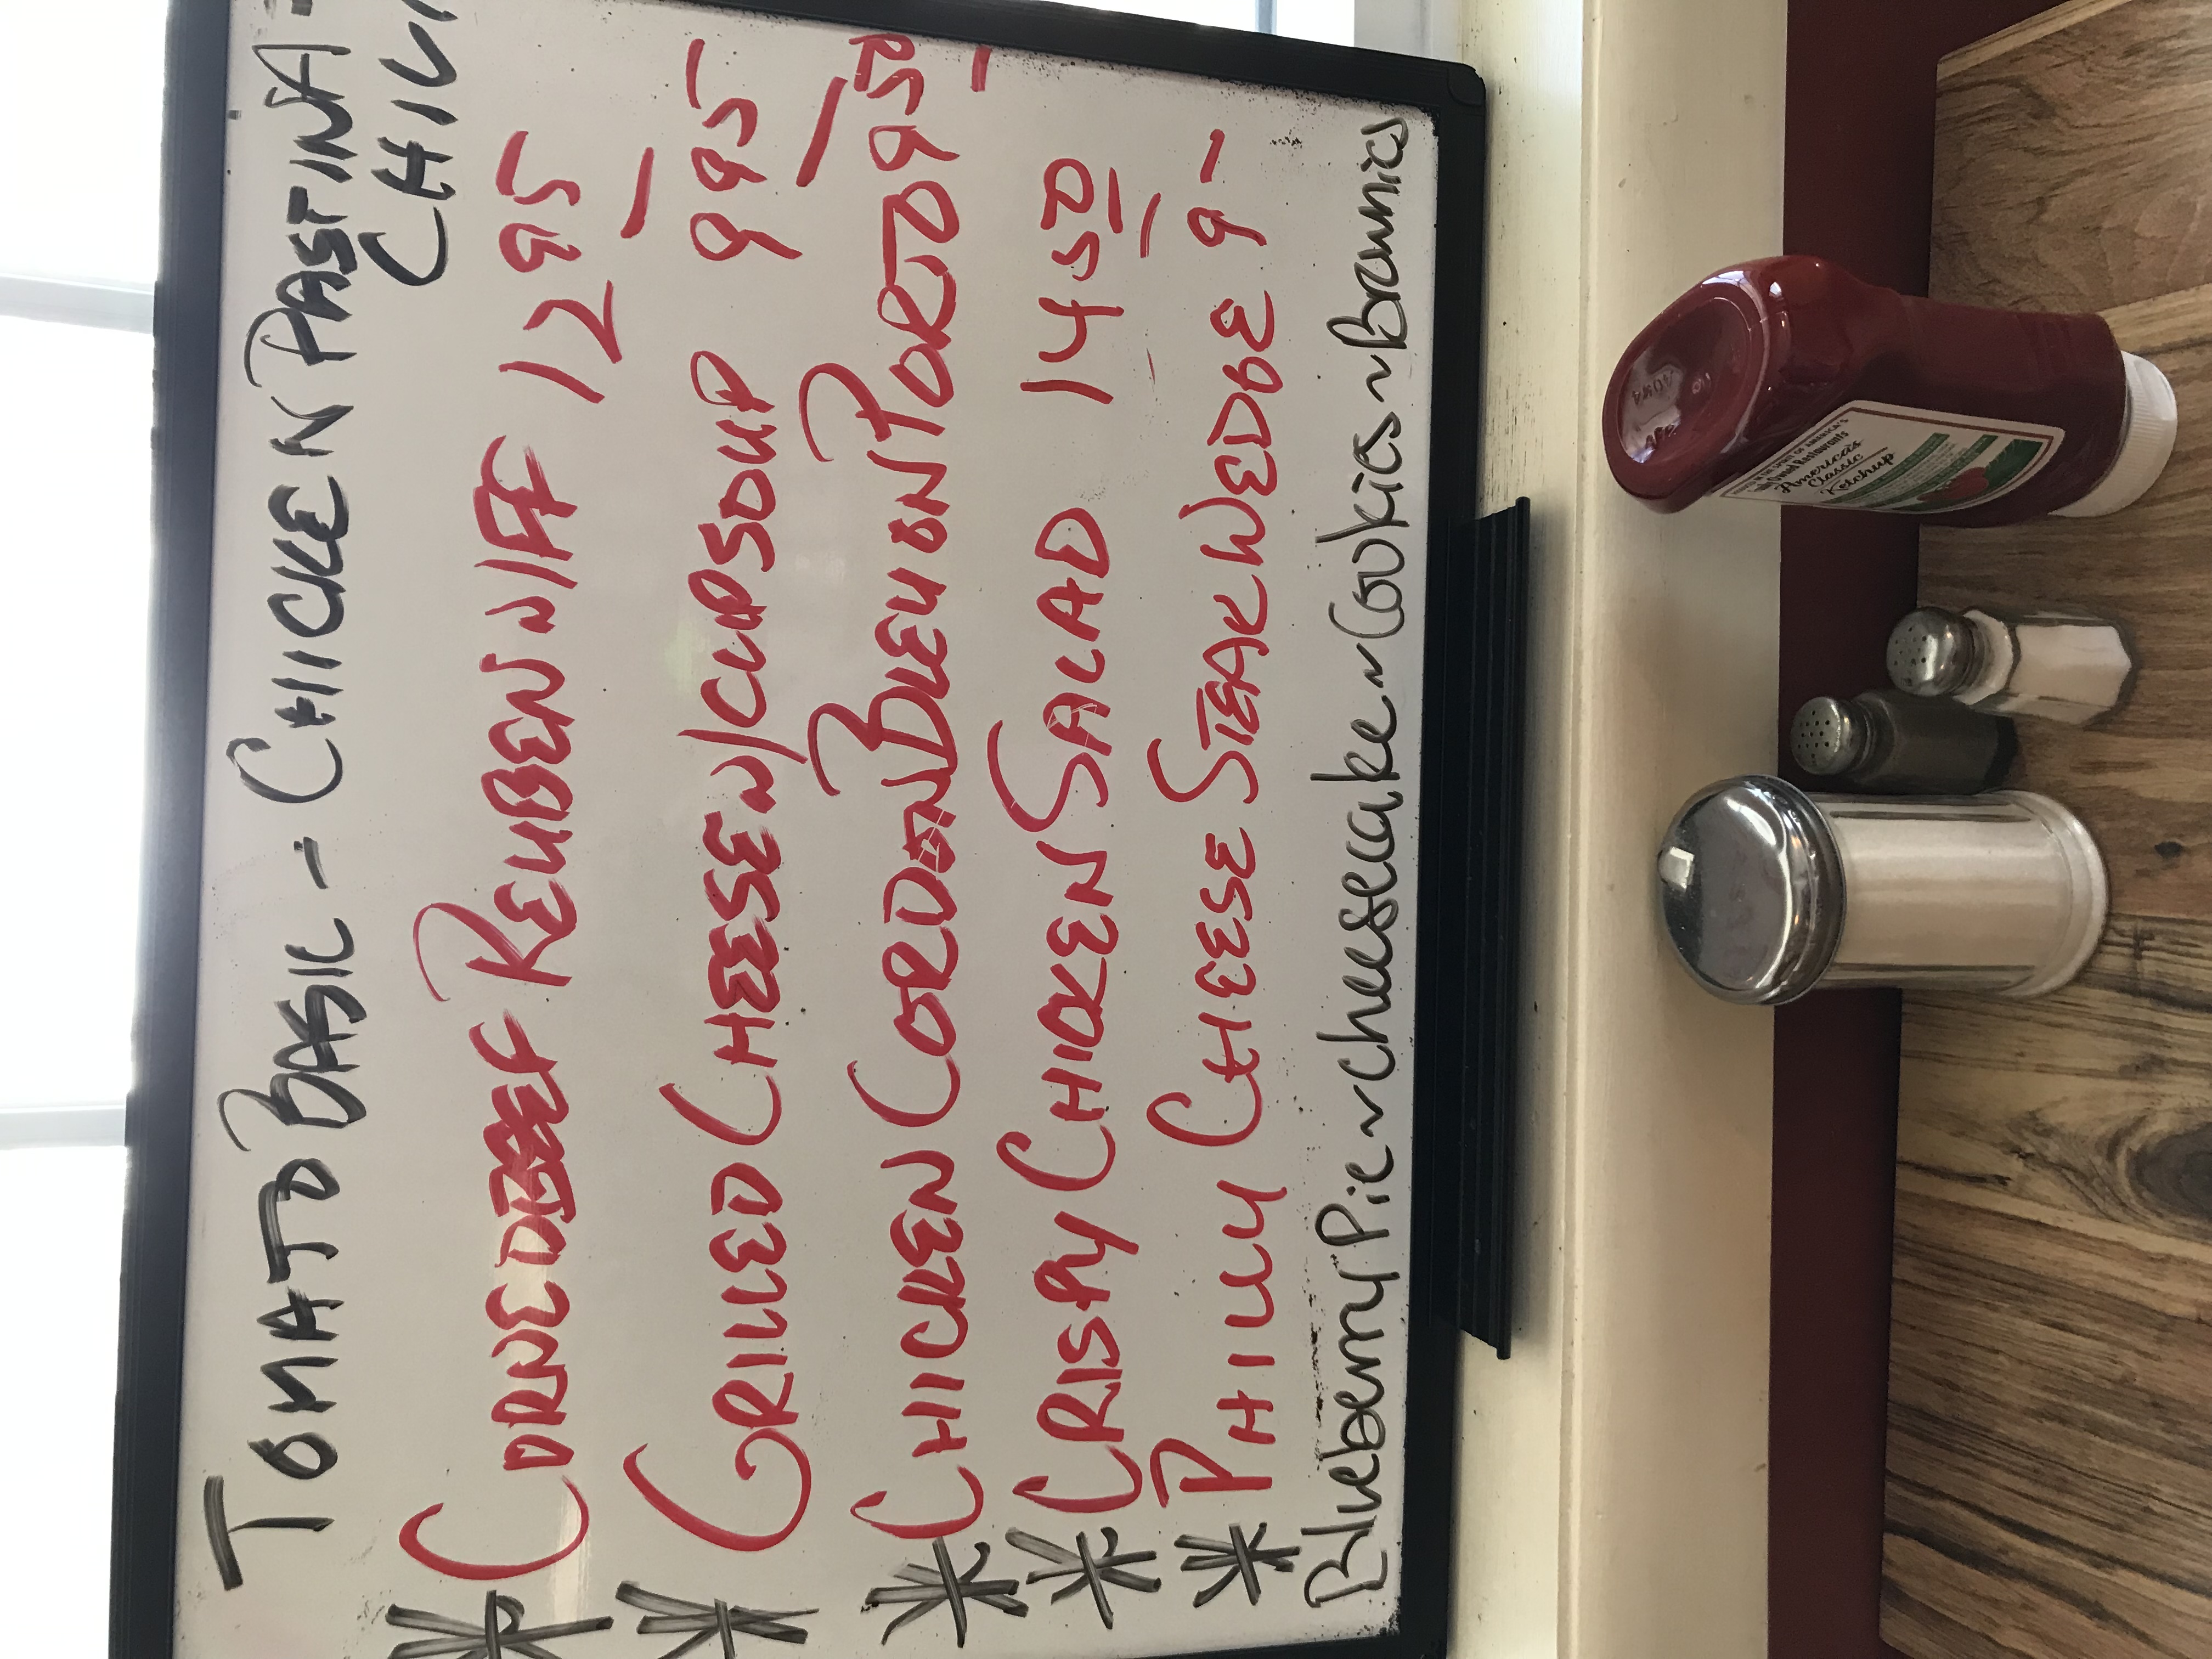 TOMATO BASIL - CHICKEN PASTINA -
CHILI
* CORNED BEEF REUBEN W/FF 12 95
* GRILLED CHEESE W/CUP SOUP 9 95
* CHICKEN CORDON BLEU ON PORT 9 95
* CRISPY CHICKEN SALAD 14 50
* PHILLY CHEESE STEAK WEDGE 9-
Blueberry Pie ~ cheesecake ~ Cookies ~ Brownies
America's
Classic
Ketchup